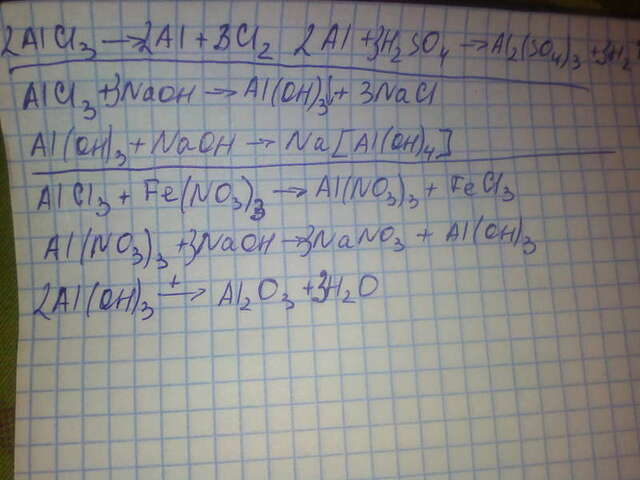 2AlCl₃ → 2Al + 3Cl₂ 2Al + 3H₂SO₄ → Al₂(SO₄)₃ + 3H₂
AlCl₃ + 3NaOH → Al(OH)₃↓ + 3NaCl
Al(OH)₃ + NaOH → Na[Al(OH)₄]
AlCl₃ + Fe(NO₃)₃ → Al(NO₃)₃ + FeCl₃
Al(NO₃)₃ + 3NaOH → 3NaNO₃ + Al(OH)₃
2Al(OH)₃ t→ Al₂O₃ + 3H₂O